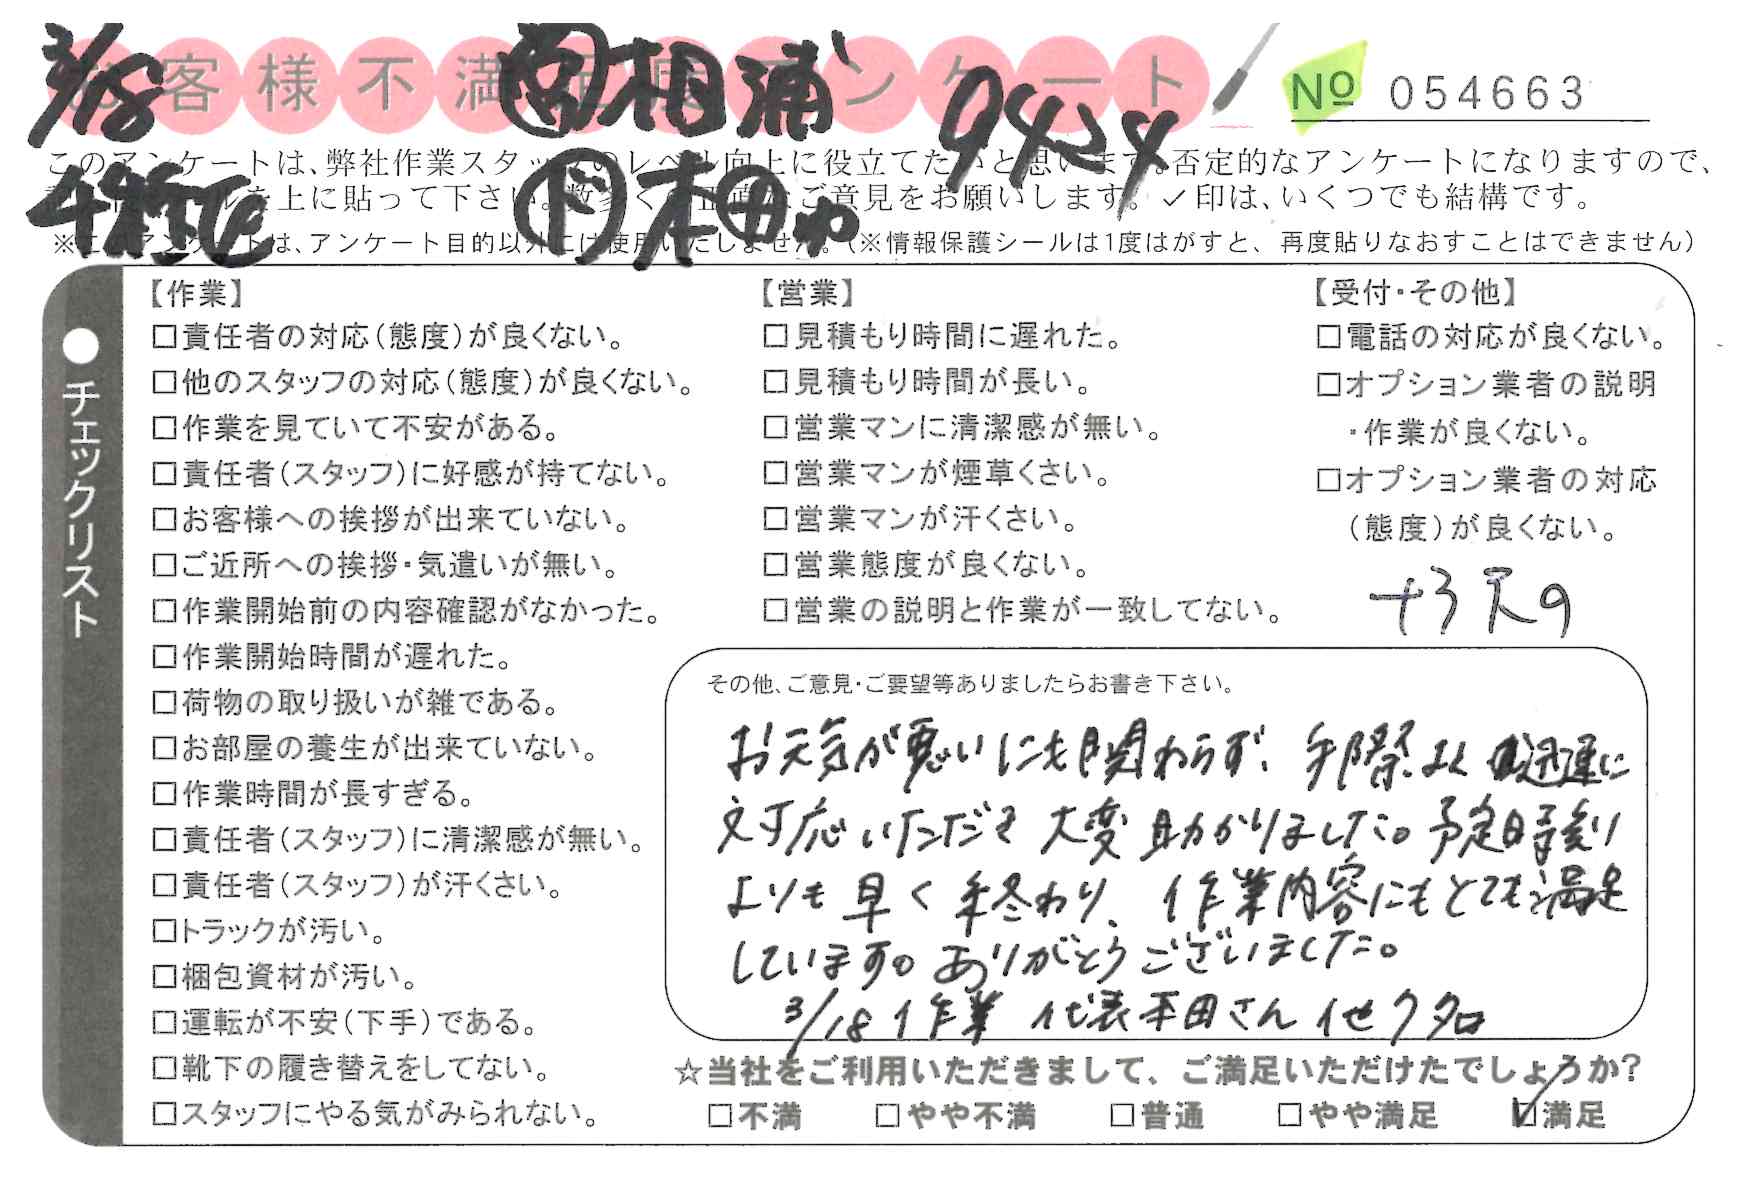 3/18
お客様不満足度アンケート
相浦
9424
No 054663
このアンケートは、弊社作業スタッフのレベル向上に役立てたいと思います。否定的なアンケートになりますので、
を上に貼って下さい。数多くの正直なご意見をお願いします。✓印は、いくつでも結構です。
本田
※このアンケートは、アンケート目的以外には使用いたしません。(※情報保護シールは1度はがすと、再度貼りなおすことはできません)
●チェックリスト
【作業】
□責任者の対応(態度)が良くない。
□他のスタッフの対応(態度)が良くない。
□作業を見ていて不安がある。
□責任者(スタッフ)に好感が持てない。
□お客様への挨拶が出来ていない。
□ご近所への挨拶・気遣いが無い。
□作業開始前の内容確認がなかった。
□作業開始時間が遅れた。
□荷物の取り扱いが雑である。
□お部屋の養生が出来ていない。
□作業時間が長すぎる。
□責任者(スタッフ)に清潔感が無い。
□責任者(スタッフ)が汗くさい。
□トラックが汚い。
□梱包資材が汚い。
□運転が不安(下手)である。
□靴下の履き替えをしてない。
□スタッフにやる気がみられない。
【営業】
□見積もり時間に遅れた。
□見積もり時間が長い。
□営業マンに清潔感が無い。
□営業マンが煙草くさい。
□営業マンが汗くさい。
□営業態度が良くない。
□営業の説明と作業が一致してない。
【受付・その他】
□電話の対応が良くない。
□オプション業者の説明
・作業が良くない。
□オプション業者の対応
(態度)が良くない。
その他、ご意見・ご要望等ありましたらお書き下さい。
お天気が悪いにも関わらず、手際よく迅速に
対応いただき大変助かりました。予定時刻
よりも早く終わり、作業内容にもとても満足
しています。ありがとうございました。
3/18 作業 代表平田さん 他7名
☆当社をご利用いただきまして、ご満足いただけたでしょうか?
□不満 □やや不満 □普通 □やや満足 ☑満足